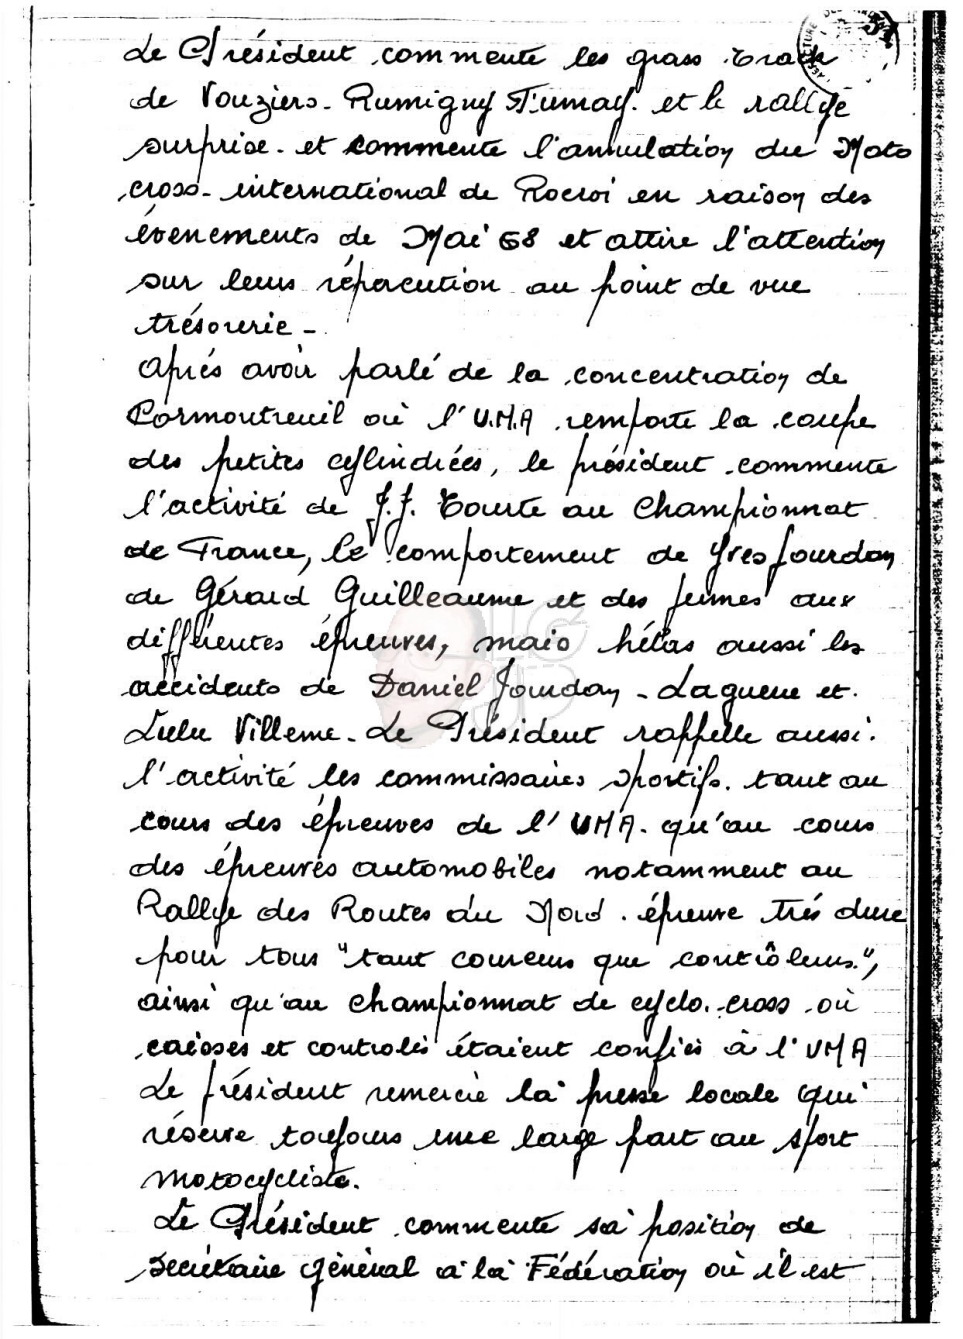 Le Président commente les grass track
de Vouziers - Rumigny Fumay. et le rallye
surprise - et commente l'annulation du Moto
cross - international de Rocroi en raison des
évenements de Mai 68 et attire l'attention
sur leurs répercution au point de vue
trésorerie -
Après avoir parlé de la concentration de
Cormontreuil où l'U.M.A remporte la coupe
des petites cylindrées, le président commente
l'activité de J.J. Tourte au Championnat
de France, le comportement de Yves Jourdan
de Gérard Guilleaume et des jeunes aux
différentes épreuves, mais hélas aussi les
accidents de Daniel Jourdan - Laguerre et
Lulu Villeme - Le Président rappelle aussi
l'activité les commissaires sportifs. tant au
cours des épreuves de l'UMA. qu'au cours
des épreuves automobiles notamment au
Rallye des Routes du Nord. épreuve très dure
pour tous "tant coureurs que contrôleurs",
ainsi qu'au championnat de cyclo-cross où
caisses et controles étaient confiés à l'UMA
Le président remercie la presse locale qui
réserve toujours une large part au sport
motocycliste.
Le Président commente sa position de
secrétaire général à la Fédération où il est
LC
JD